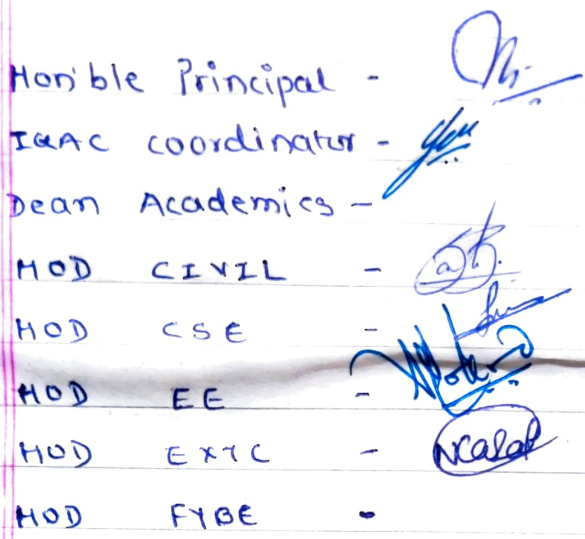 Hon'ble Principal -
IQAC coordinator -
Dean Academics -
HOD CIVIL -
HOD CSE -
HOD EE -
HOD EXTC -
HOD FYBE -